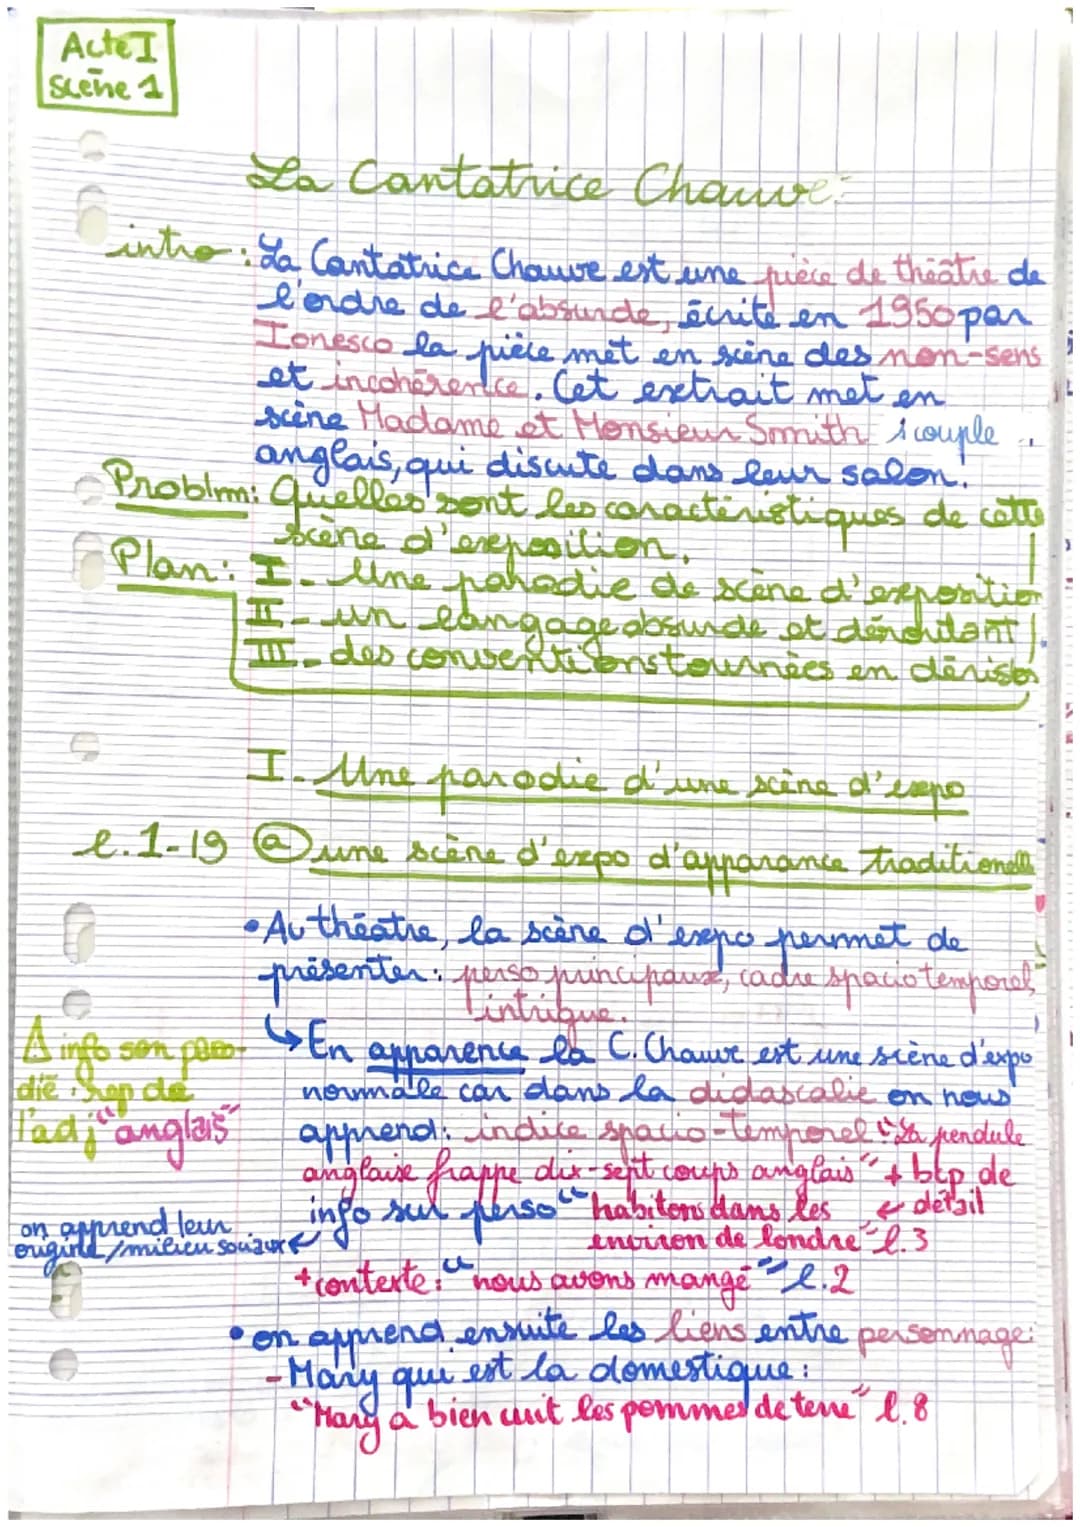 Acte I
scène 1
La Cantatrice Chauve.
intro : La Cantatrice Chauve est une pièce de théâtre de
l'ordre de l'absurde, écrite en 1950 par
Ionesco la pièce met en scène des non-sens
et incohérence. Cet extrait met en
scène Madame et Monsieur Smith, couple
anglais, qui discute dans leur salon.
Problm: Quelles sont les caractéristiques de cette
scène d'exposition.
Plan: I- Une parodie de scène d'exposition
II- un langage absurde et déroutant
III- des conventions tournées en dérision
I- Une parodie d'une scène d'expo
l.1-19 ⓐ une scène d'expo d'apparance traditionelle
• Au théâtre, la scène d'expo permet de
présenter: perso principaux, cadre spacio temporel,
intrigue.
↳ En apparence la C. Chauve est une scène d'expo
normale car dans la didascalie on nous
apprend: indice spacio-temporel "La pendule
anglaise frappe dix-sept coups anglais" + bcp de
détail
info sur perso "habitons dans les
environ de londre" l.3
+ contexte: "nous avons mangé" l.2
Δ info son paro-
die. rep de
l'adj "anglais"
on apprend leur
origine/milieu sociaux
• on apprend ensuite les liens entre personnage:
- Mary qui est la domestique:
"Mary a bien cuit les pommes de terre" l.8